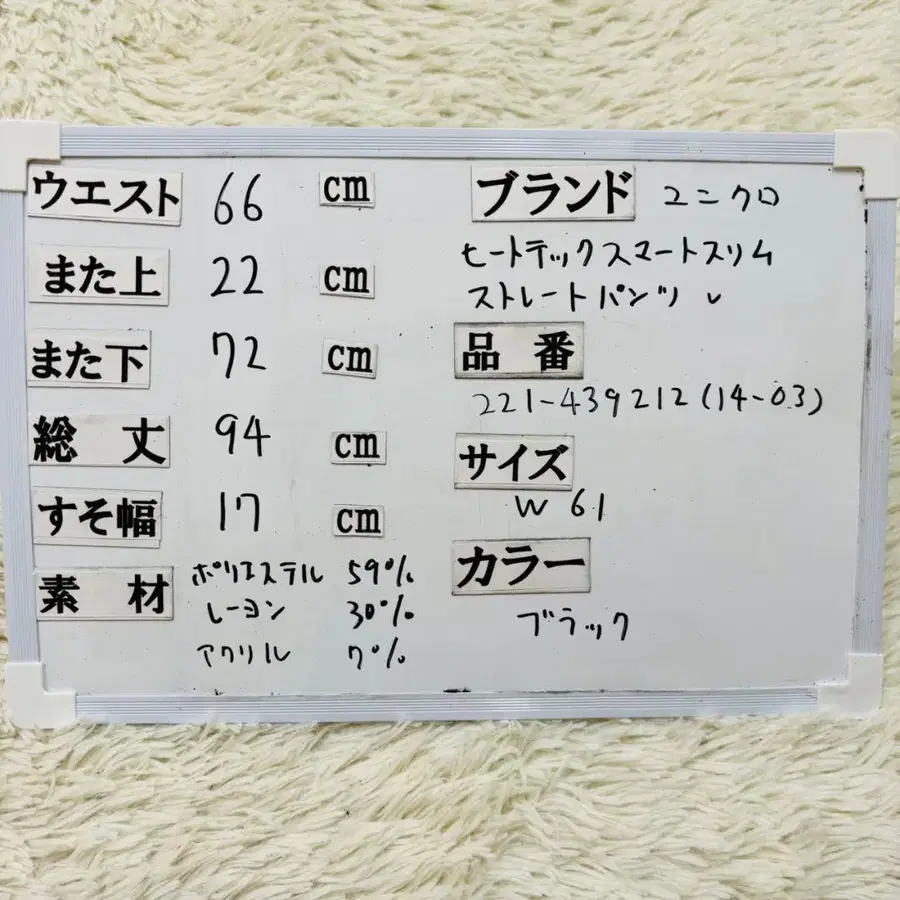 ウエスト 66 cm
また上 22 cm
また下 72 cm
総丈 94 cm
すそ幅 17 cm
素材 ポリエステル 59%
レーヨン 30%
アクリル 7%
ブランド ユニクロ
ヒートテックスマートスリム
ストレートパンツ
品番
221-439212(14-03)
サイズ
W 61
カラー
ブラック